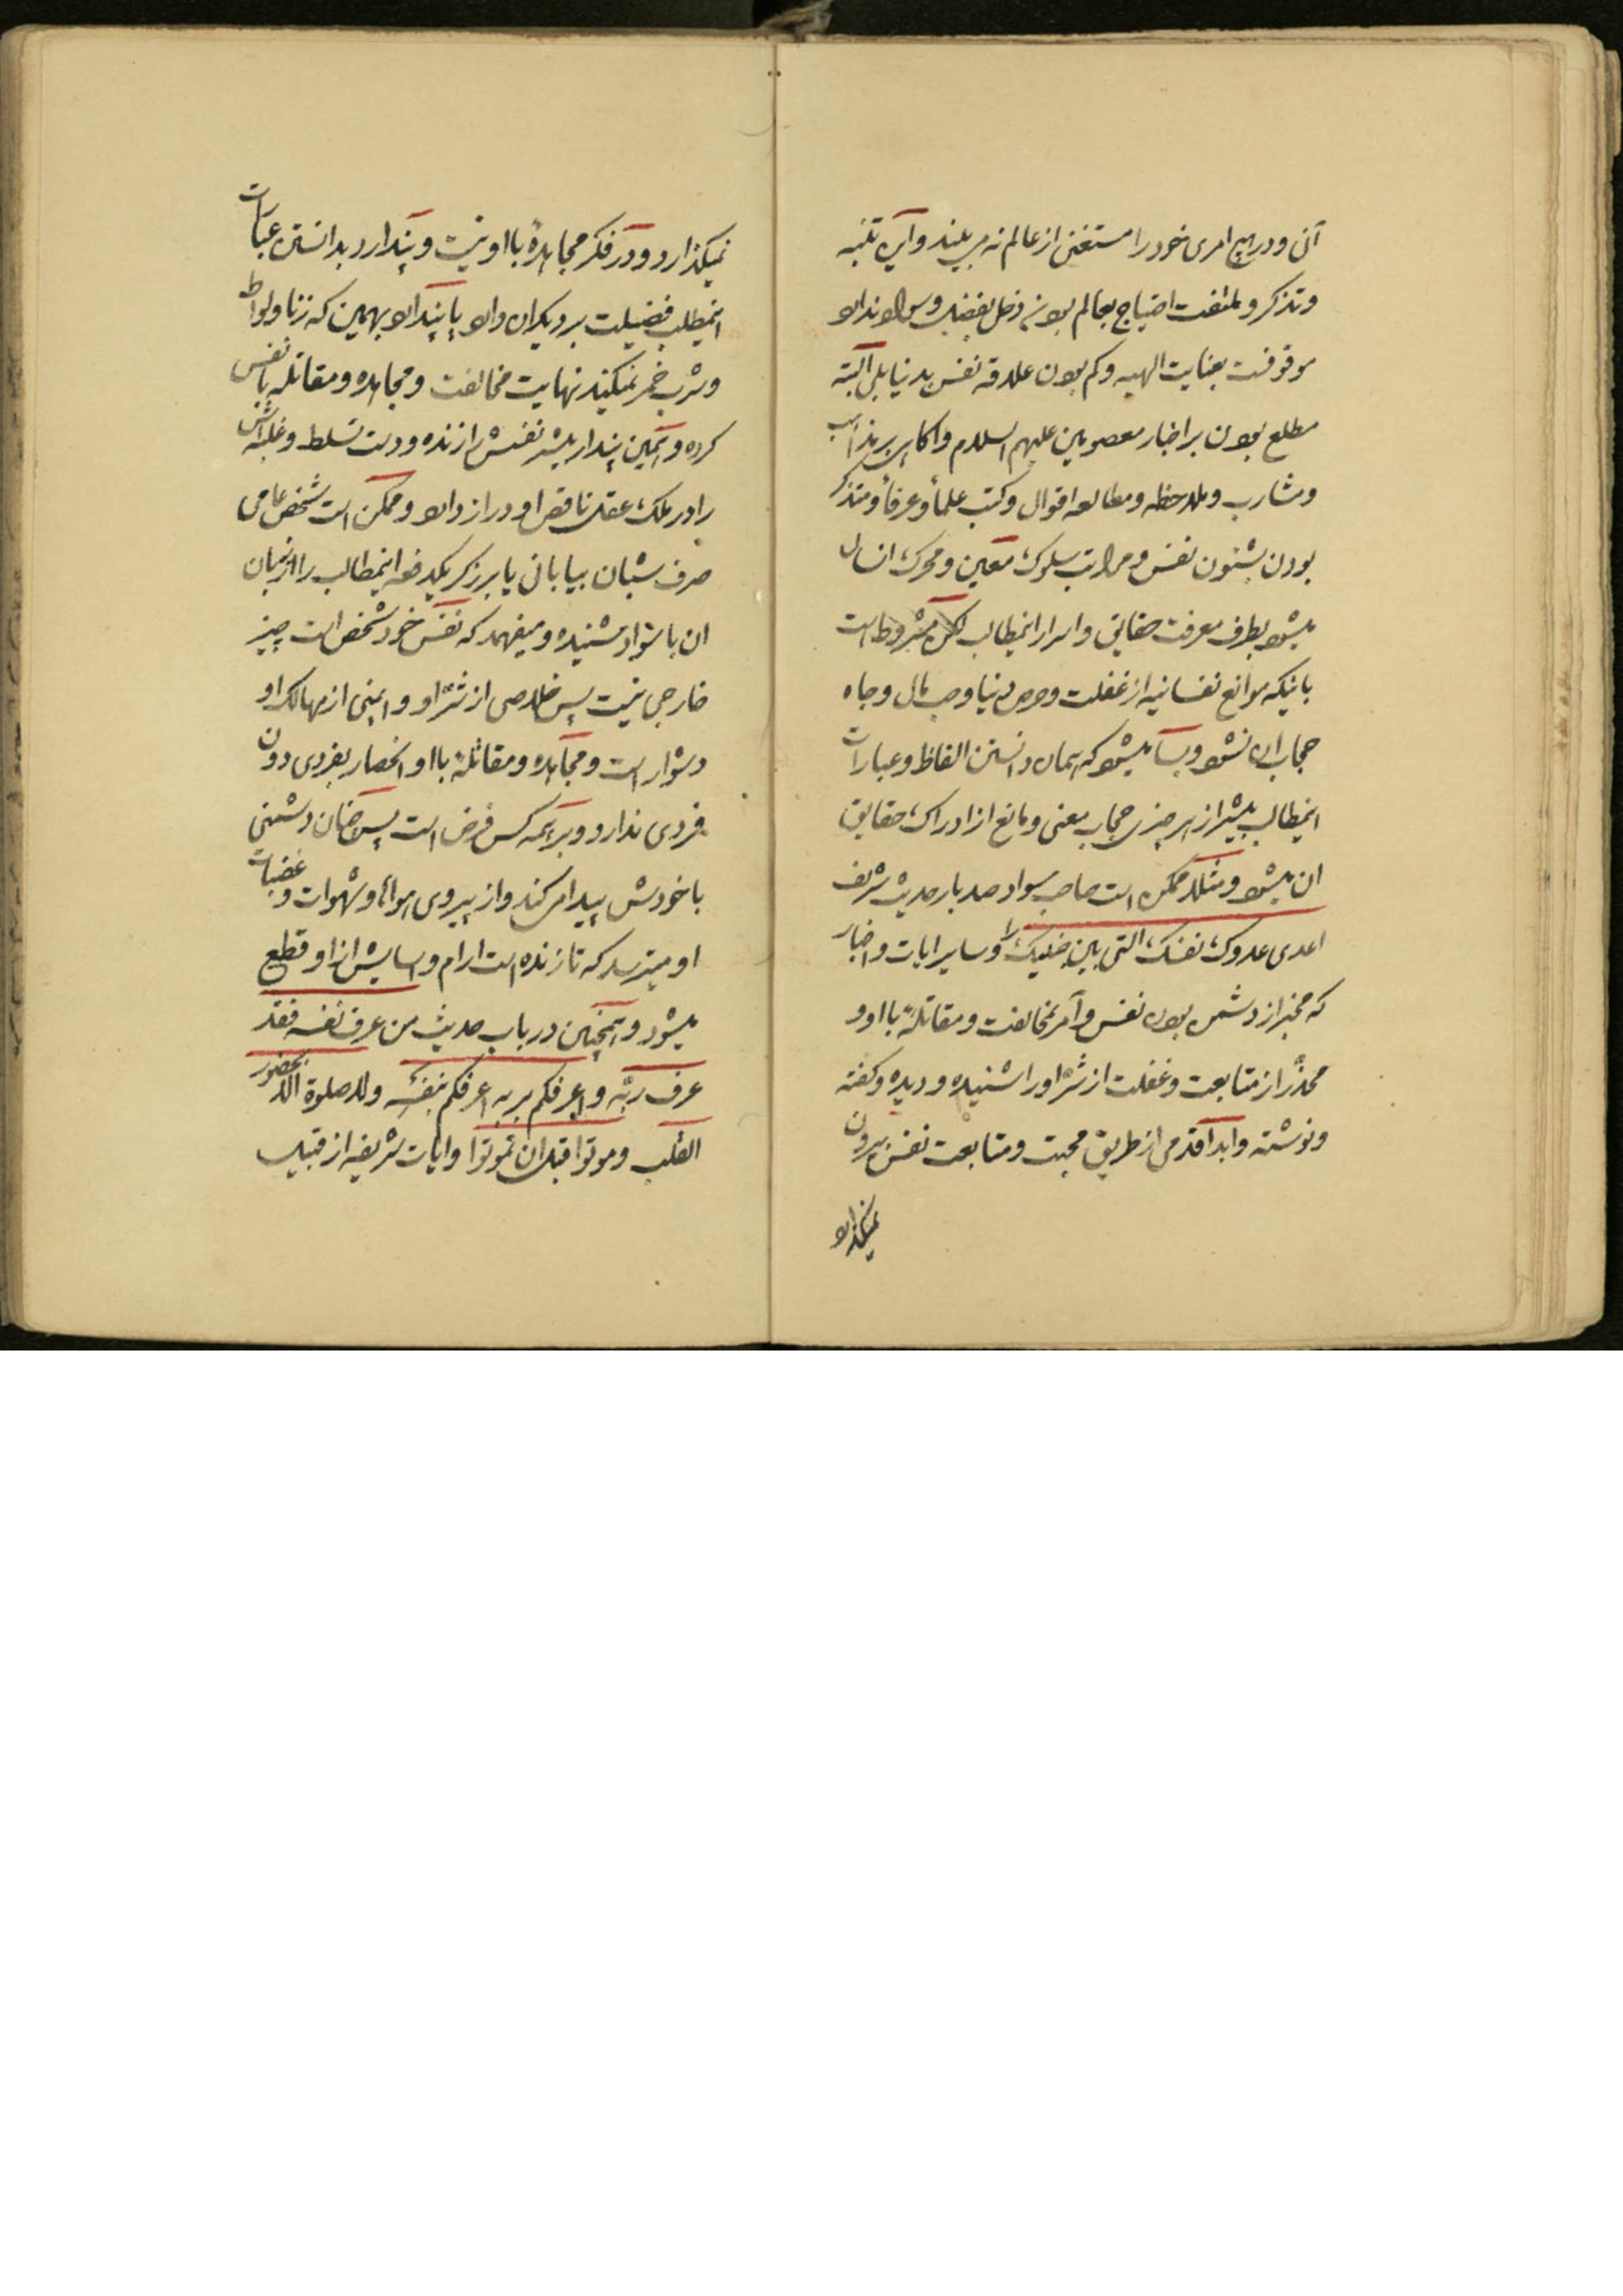 آنی و در هیچ امری خود را مستغنی از عالم نه می بیند و این تنبه
و تذکر و ملتفت احتیاج بعالم بودن دخلی بفضل و سواد ندارد
موقوفست بعنایت الهیه و کم بودن علاقه نفس بدنیا بلی البته
مطلع بودن بر اخبار معصومین علیهم السلام و آگاهی بر مذاهب
و مشارب و ملاحظه و مطالعه اقوال و کتب علما و عرفا و متذکر
بودن بشئون نفس و مراتب سلوک معین و محرک انسان
میشود بطرف معرفت حقایق و اسرار اینمطالب لکن مشروط است
باینکه موانع نفسانیه از غفلت و حرص دنیا و حب مال و جاه
حجاب ان نشود و بسا میشود که همان دانستن الفاظ و عبارات
اینمطالب بیشتر از هر چیزی حجاب معنی و مانع از ادراک حقایق
ان میشود و مثلا ممکن است صاحب سواد صد بار حدیث شریف
اعدی عدوک نفسک التی بین جنبیک را و سایر ایات و اخبار
که مخبر از دشمن بودن نفس و آمر بمخالفت و مقاتلهٔ با او و
محذّر از متابعت و غفلت از شرّ او را شنیده و دیده و گفته
و نوشته و ابدا قدمی از طریق محبت و متابعت نفس بیرون
نمیگذارد
نمیگذارد و در فکر مجاهدهٔ با او نیست و پندارد بدانستن عبارات
اینمطلب فضیلت بر دیگران دارد یا پندارد بهمین که زنا و لواط
و شرب خمر نمیکند نهایت مخالفت و مجاهده و مقاتله با نفس
کرده و همین پندار بیشتر نفسش را زنده و دست تسلط و غلبه اش
را در ملک عقل ناقص او دراز دارد و ممکن است شخص عامی
صرف شبان بیابانی یا برزگر یکدفعه اینمطالب را از زبان
ان با سواد شنیده و میفهمد که نفس خود شخص است چیز
خارجی نیست پس خلاصی از شرّ او و ایمنی از مهالک او
دشوار است و مجاهده و مقاتلهٔ با او انحصار بفردی دون
فردی ندارد و بر همه کس فرض است پس چنان دشمنی
با خودش پیدا می کند و از پیروی هواها و شهوات و غضبات
او میترسد که تا زنده است ارام و اسایش از او قطع
میشود و همچنین در باب حدیث من عرف نفسه فقد
عرف ربّه و اعرفکم بربه اعرفکم بنفسه و لا صلوة الا بحضور
القلب و موتوا قبل ان تموتوا و ایات شریفه از قبیل